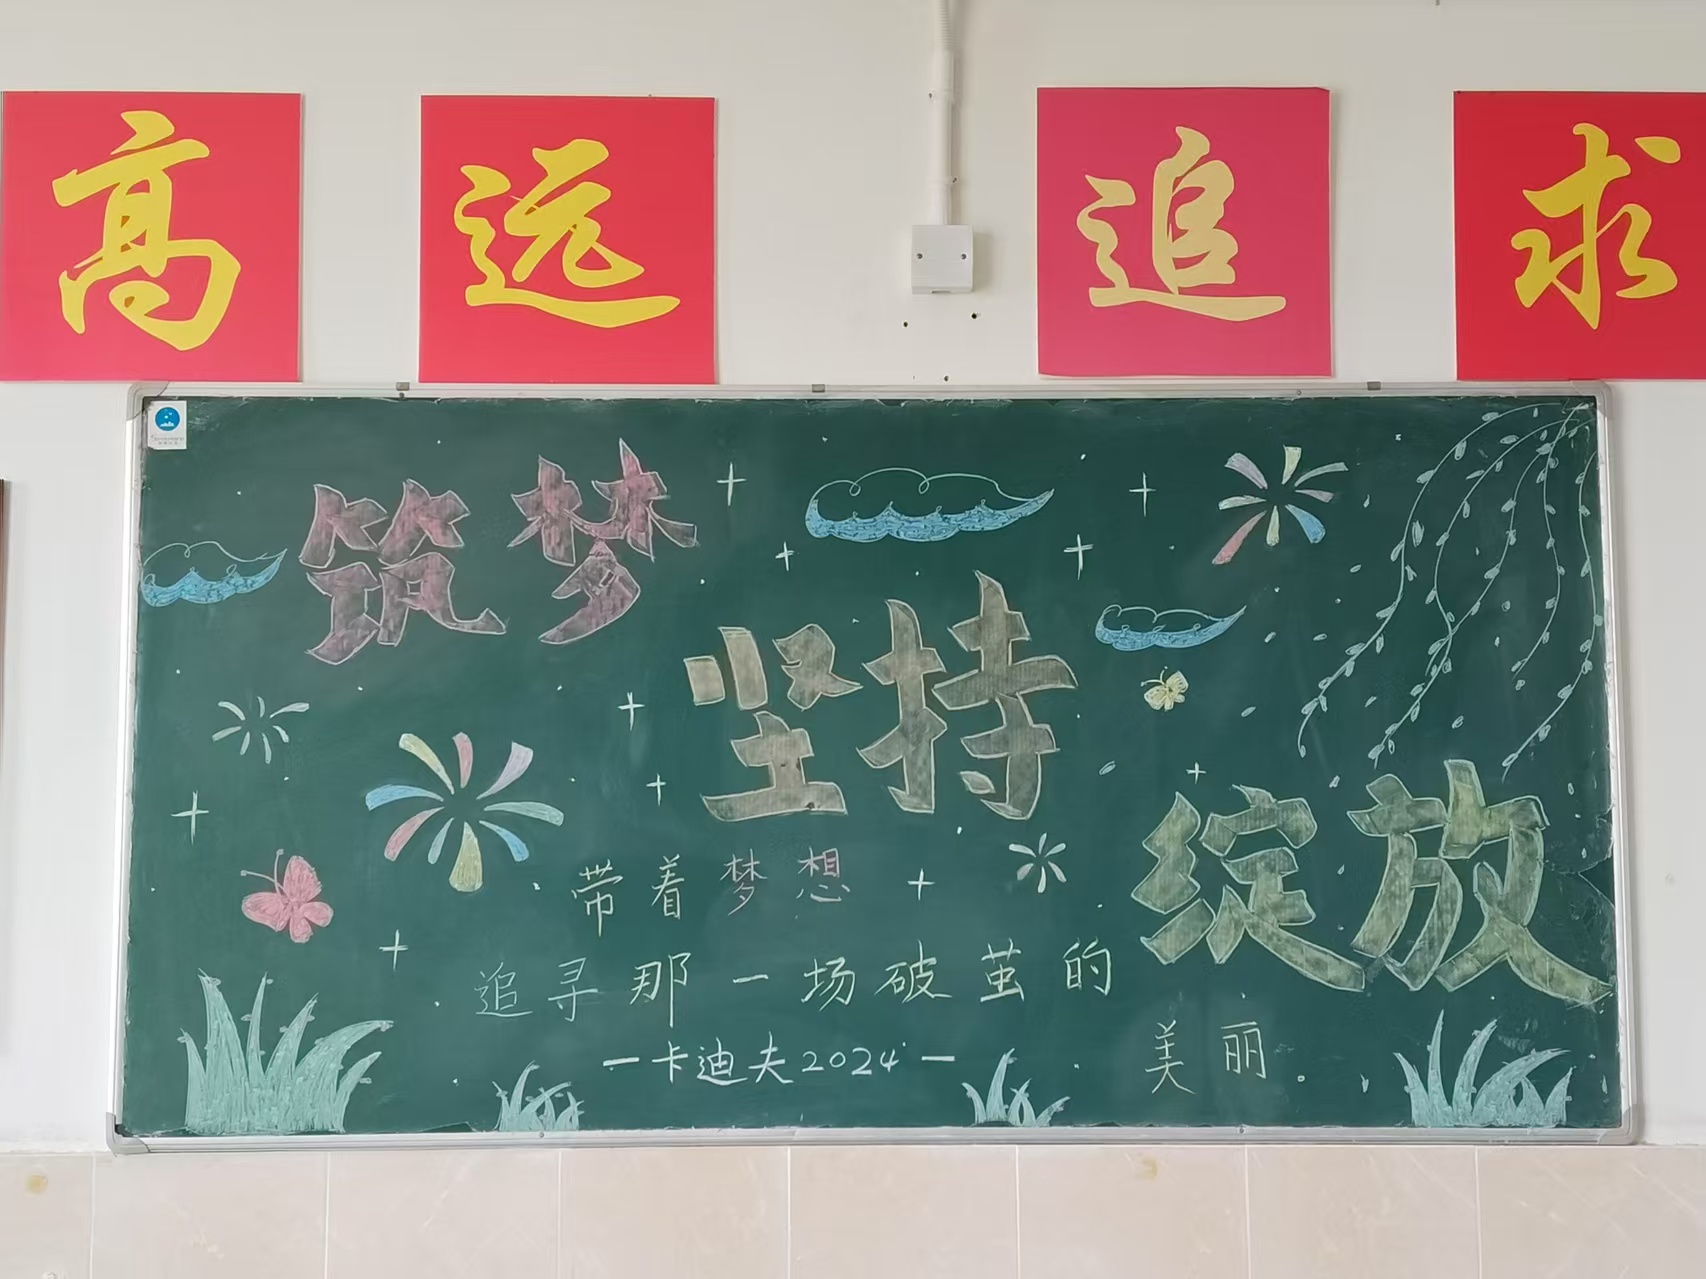 高远追求
筑梦
坚持
绽放
带着梦想
追寻那一场破茧的
美丽。
一卡迪夫2024一